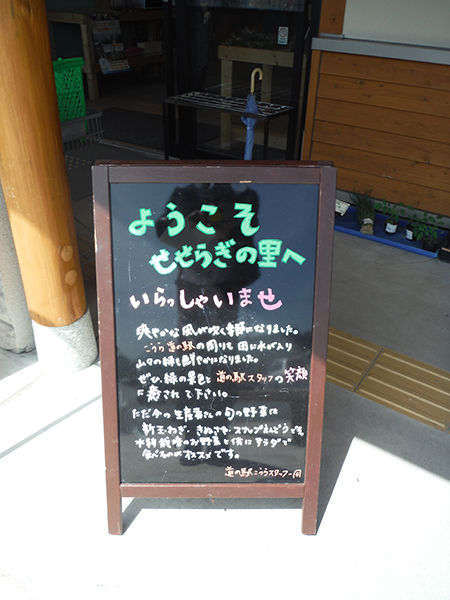 ようこそ
せせらぎの里へ
いらっしゃいませ
爽やかな風が吹く季節になりました。
こうら道の駅の周りも田に水が入り
山々の緑も鮮やかになりました。
ぜひ、緑の景色と道の駅スタッフの笑顔
に癒されて下さい。
ただ今の生産者さんの旬の野菜は
新玉ねぎ・きぬさや・スナップえんどうです。
水耕栽培のお野菜と供にサラダで
食べるのがオススメです。
道の駅こうらスタッフ一同